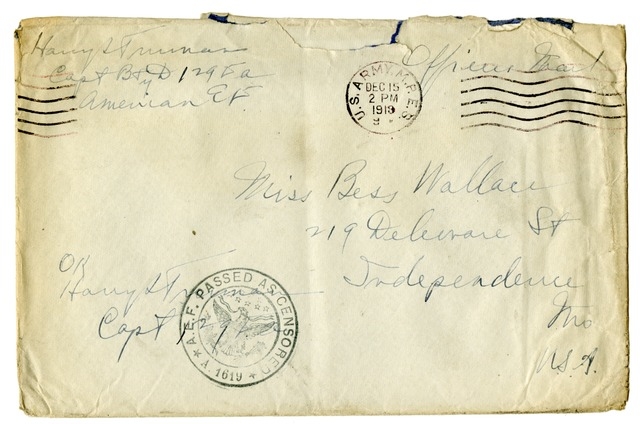 Harry S Truman
Capt Bty D 129 F a
American E F
Officers Mail
U.S. ARMY M.P.E.S.
DEC 15
2 PM
1918
Miss Bess Wallace
219 Deleware St
Independence
Mo
U.S.A.
OK
Harry S Truman
Capt 129 F a
A.E.F. PASSED AS CENSORED
A. 1619